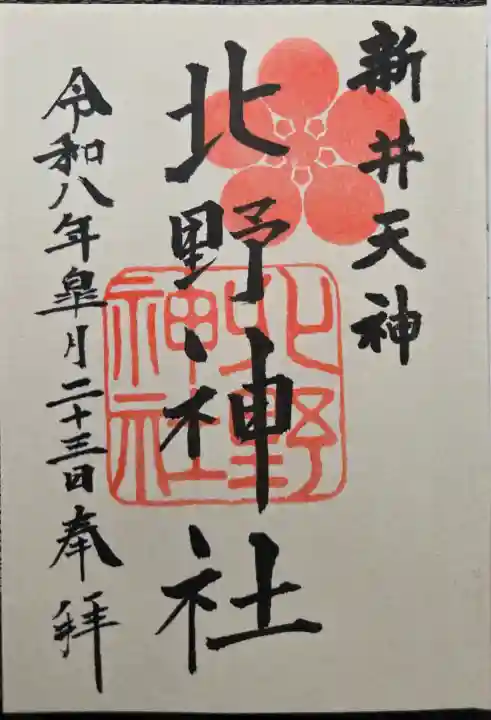 新井天神
北野神社
北野
神社
令和八年皐月二十三日奉拝